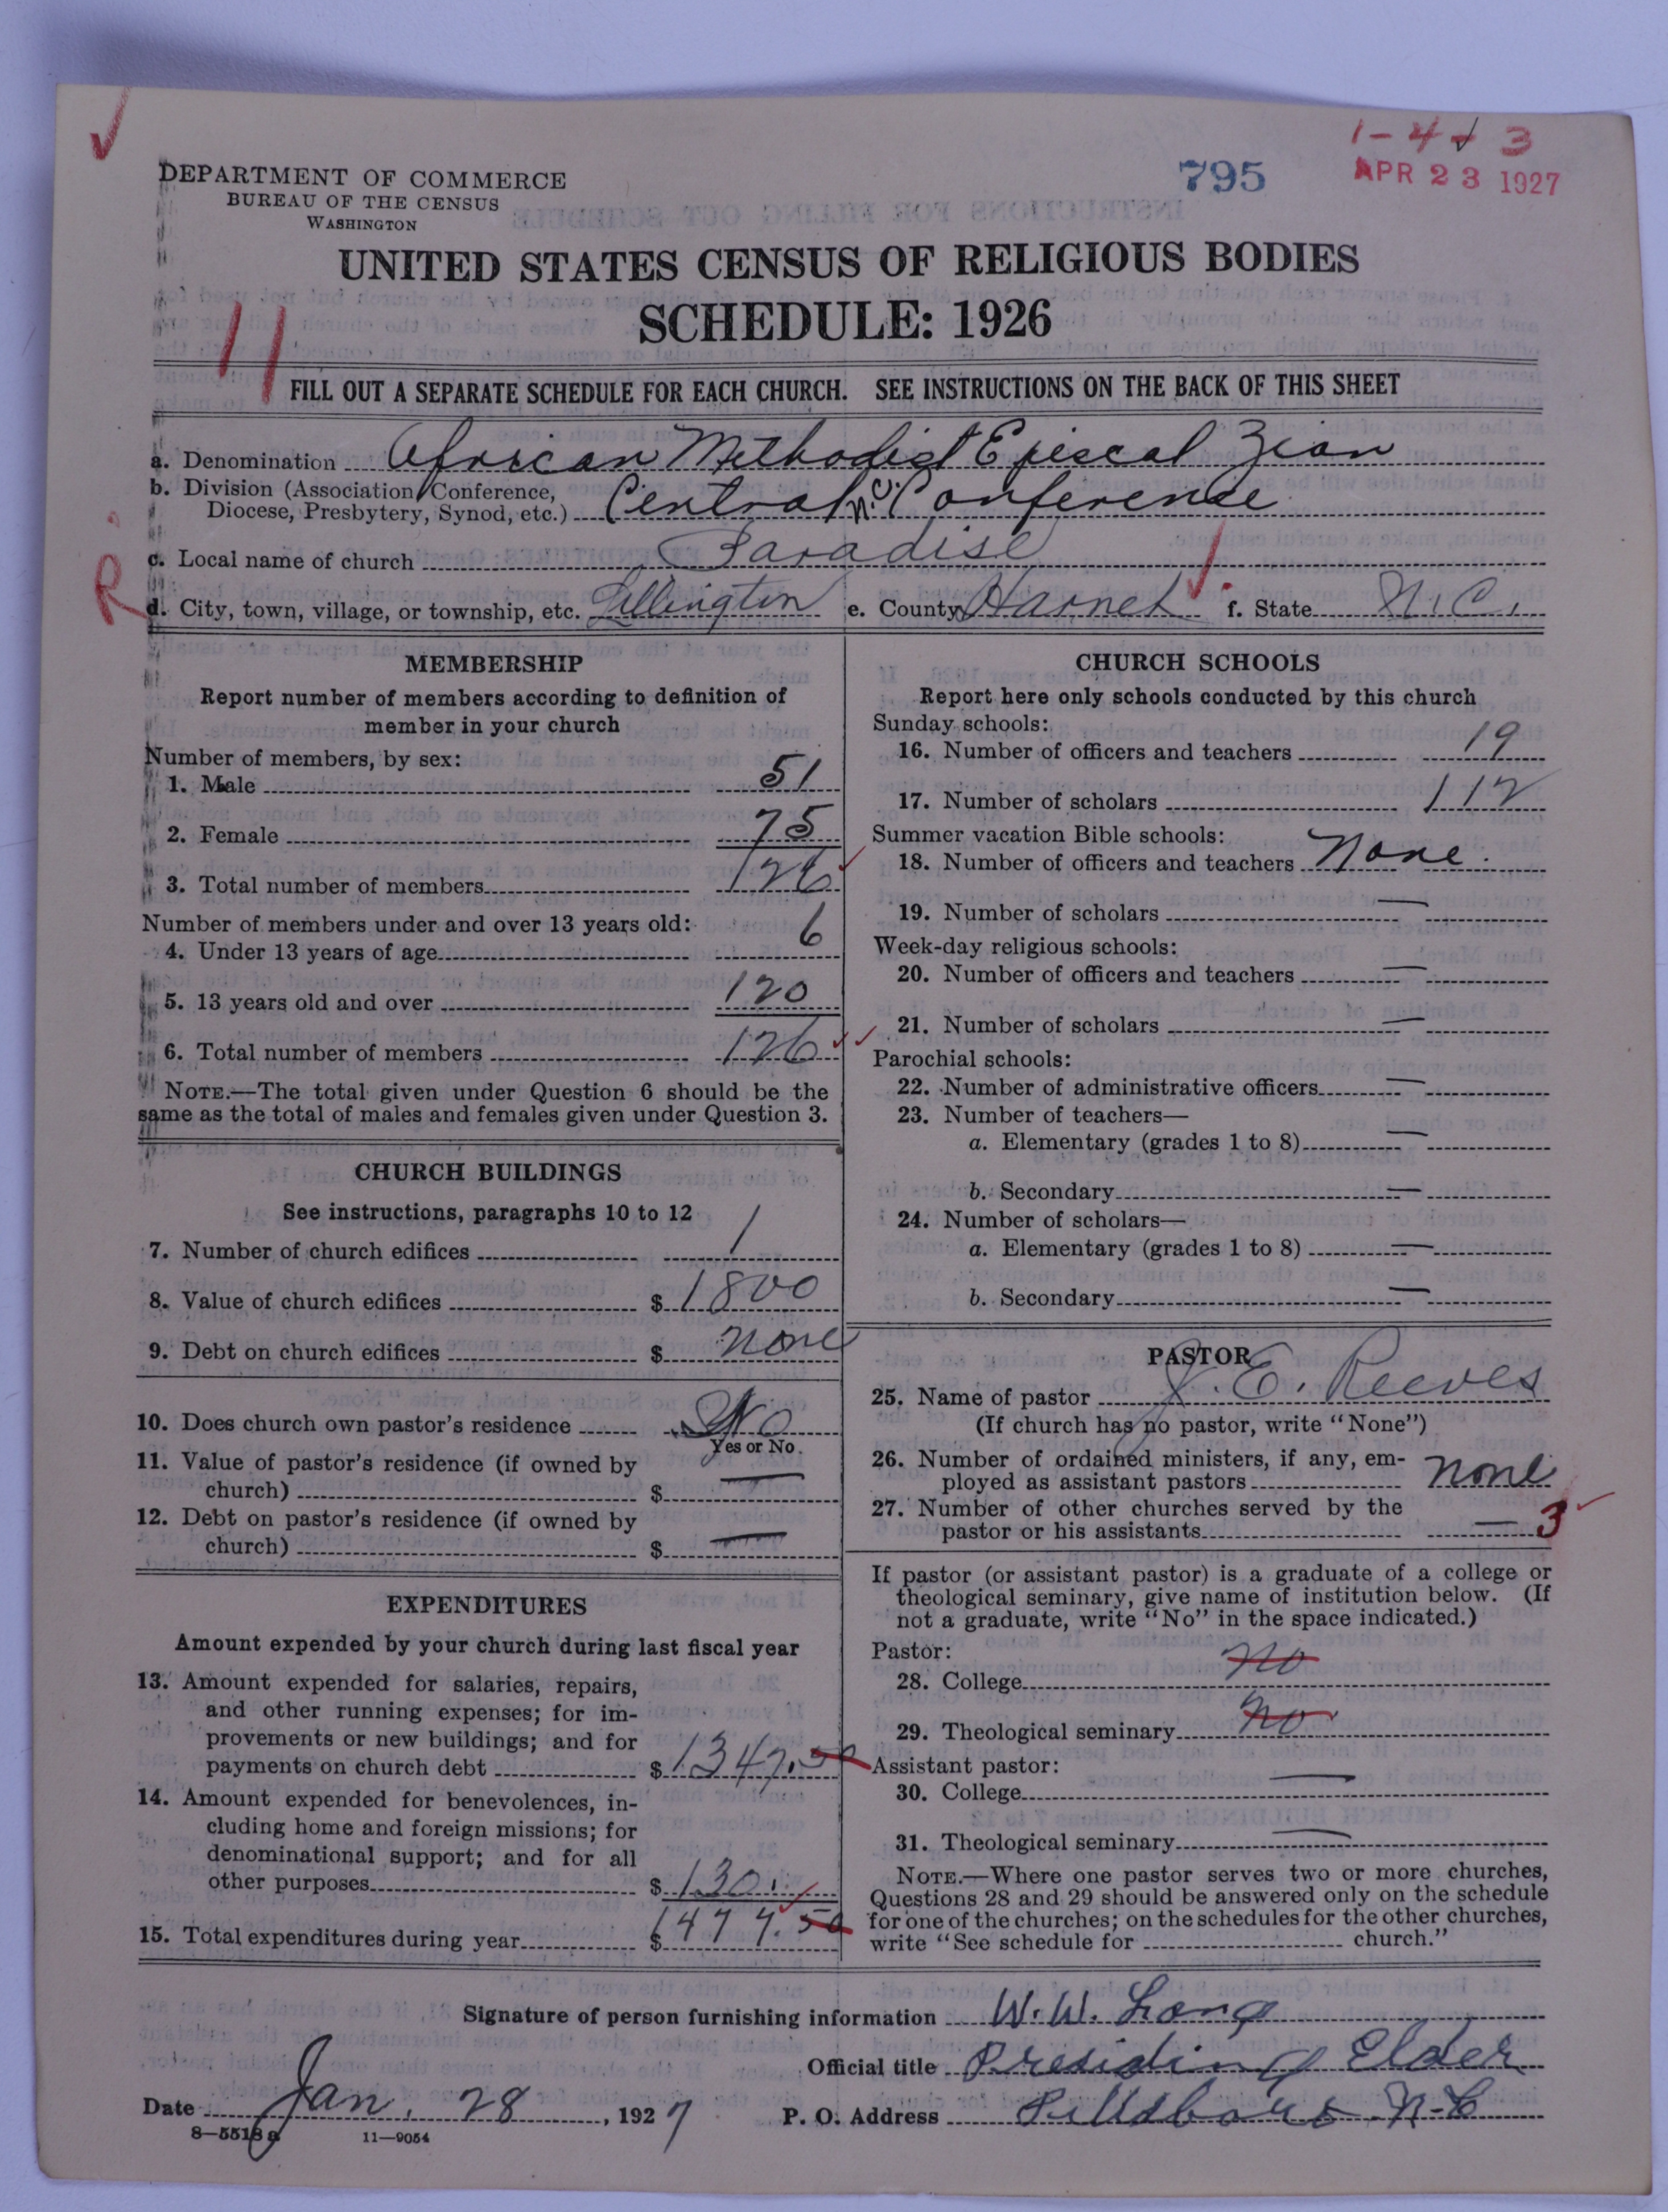 1-4+3
795
APR 23 1927
DEPARTMENT OF COMMERCE
BUREAU OF THE CENSUS
WASHINGTON
UNITED STATES CENSUS OF RELIGIOUS BODIES
SCHEDULE: 1926
11
FILL OUT A SEPARATE SCHEDULE FOR EACH CHURCH. SEE INSTRUCTIONS ON THE BACK OF THIS SHEET
a. Denomination African Methodist Episcal Zion
b. Division (Association, Conference, Diocese, Presbytery, Synod, etc.) Central N.C. Conference
c. Local name of church Paradise
R
d. City, town, village, or township, etc. Lillington e. County Harnet f. State N.C.
MEMBERSHIP
Report number of members according to definition of
member in your church
Number of members, by sex:
1. Male 51
2. Female 75
3. Total number of members 126
Number of members under and over 13 years old:
4. Under 13 years of age 6
5. 13 years old and over 120
6. Total number of members 126
NOTE.—The total given under Question 6 should be the
same as the total of males and females given under Question 3.
CHURCH BUILDINGS
See instructions, paragraphs 10 to 12
7. Number of church edifices 1
8. Value of church edifices $ 1800
9. Debt on church edifices $ none
10. Does church own pastor's residence No
Yes or No.
11. Value of pastor's residence (if owned by
church) $ —
12. Debt on pastor's residence (if owned by
church) $ —
EXPENDITURES
Amount expended by your church during last fiscal year
13. Amount expended for salaries, repairs,
and other running expenses; for im-
provements or new buildings; and for
payments on church debt $ 1347.50
14. Amount expended for benevolences, in-
cluding home and foreign missions; for
denominational support; and for all
other purposes $ 130.
15. Total expenditures during year $ 1477.50
CHURCH SCHOOLS
Report here only schools conducted by this church
Sunday schools:
16. Number of officers and teachers 19
17. Number of scholars 112
Summer vacation Bible schools:
18. Number of officers and teachers None.
19. Number of scholars —
Week-day religious schools:
20. Number of officers and teachers —
21. Number of scholars —
Parochial schools:
22. Number of administrative officers —
23. Number of teachers—
a. Elementary (grades 1 to 8) —
b. Secondary —
24. Number of scholars—
a. Elementary (grades 1 to 8) —
b. Secondary —
PASTOR
25. Name of pastor J. E. Reeves
(If church has no pastor, write "None")
26. Number of ordained ministers, if any, em-
ployed as assistant pastors none
27. Number of other churches served by the
pastor or his assistants — 3
If pastor (or assistant pastor) is a graduate of a college or
theological seminary, give name of institution below. (If
not a graduate, write "No" in the space indicated.)
Pastor:
28. College no
29. Theological seminary no
Assistant pastor:
30. College —
31. Theological seminary —
NOTE.—Where one pastor serves two or more churches,
Questions 28 and 29 should be answered only on the schedule
for one of the churches; on the schedules for the other churches,
write "See schedule for church."
Signature of person furnishing information W. W. Long
Official title Presiding Elder
Date Jan. 28, 1927 P. O. Address N-C
8—5518 a 11—9054